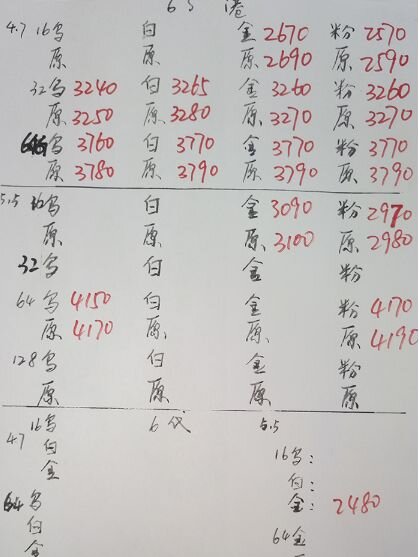 6S 港
4.7 16鸟 白 金2670 粉2570
原 原 原2690 原2590
32鸟3240 白3265 金3260 粉3260
原3250 原3280 原3270 原3270
64鸟3760 白3770 金3770 粉3770
原3780 原3790 原3790 原3790
5.5 16鸟 白 金3090 粉2970
原 原 原3100 原2980
32鸟 白 金 粉
64鸟4150 白 金 粉4170
原4170 原 原 原4190
128鸟 白 金 粉
原 原 原 原
4.7 16鸟 6代 5.5
白 16鸟:
金 白:
64鸟 金: 2480
白 64金
金